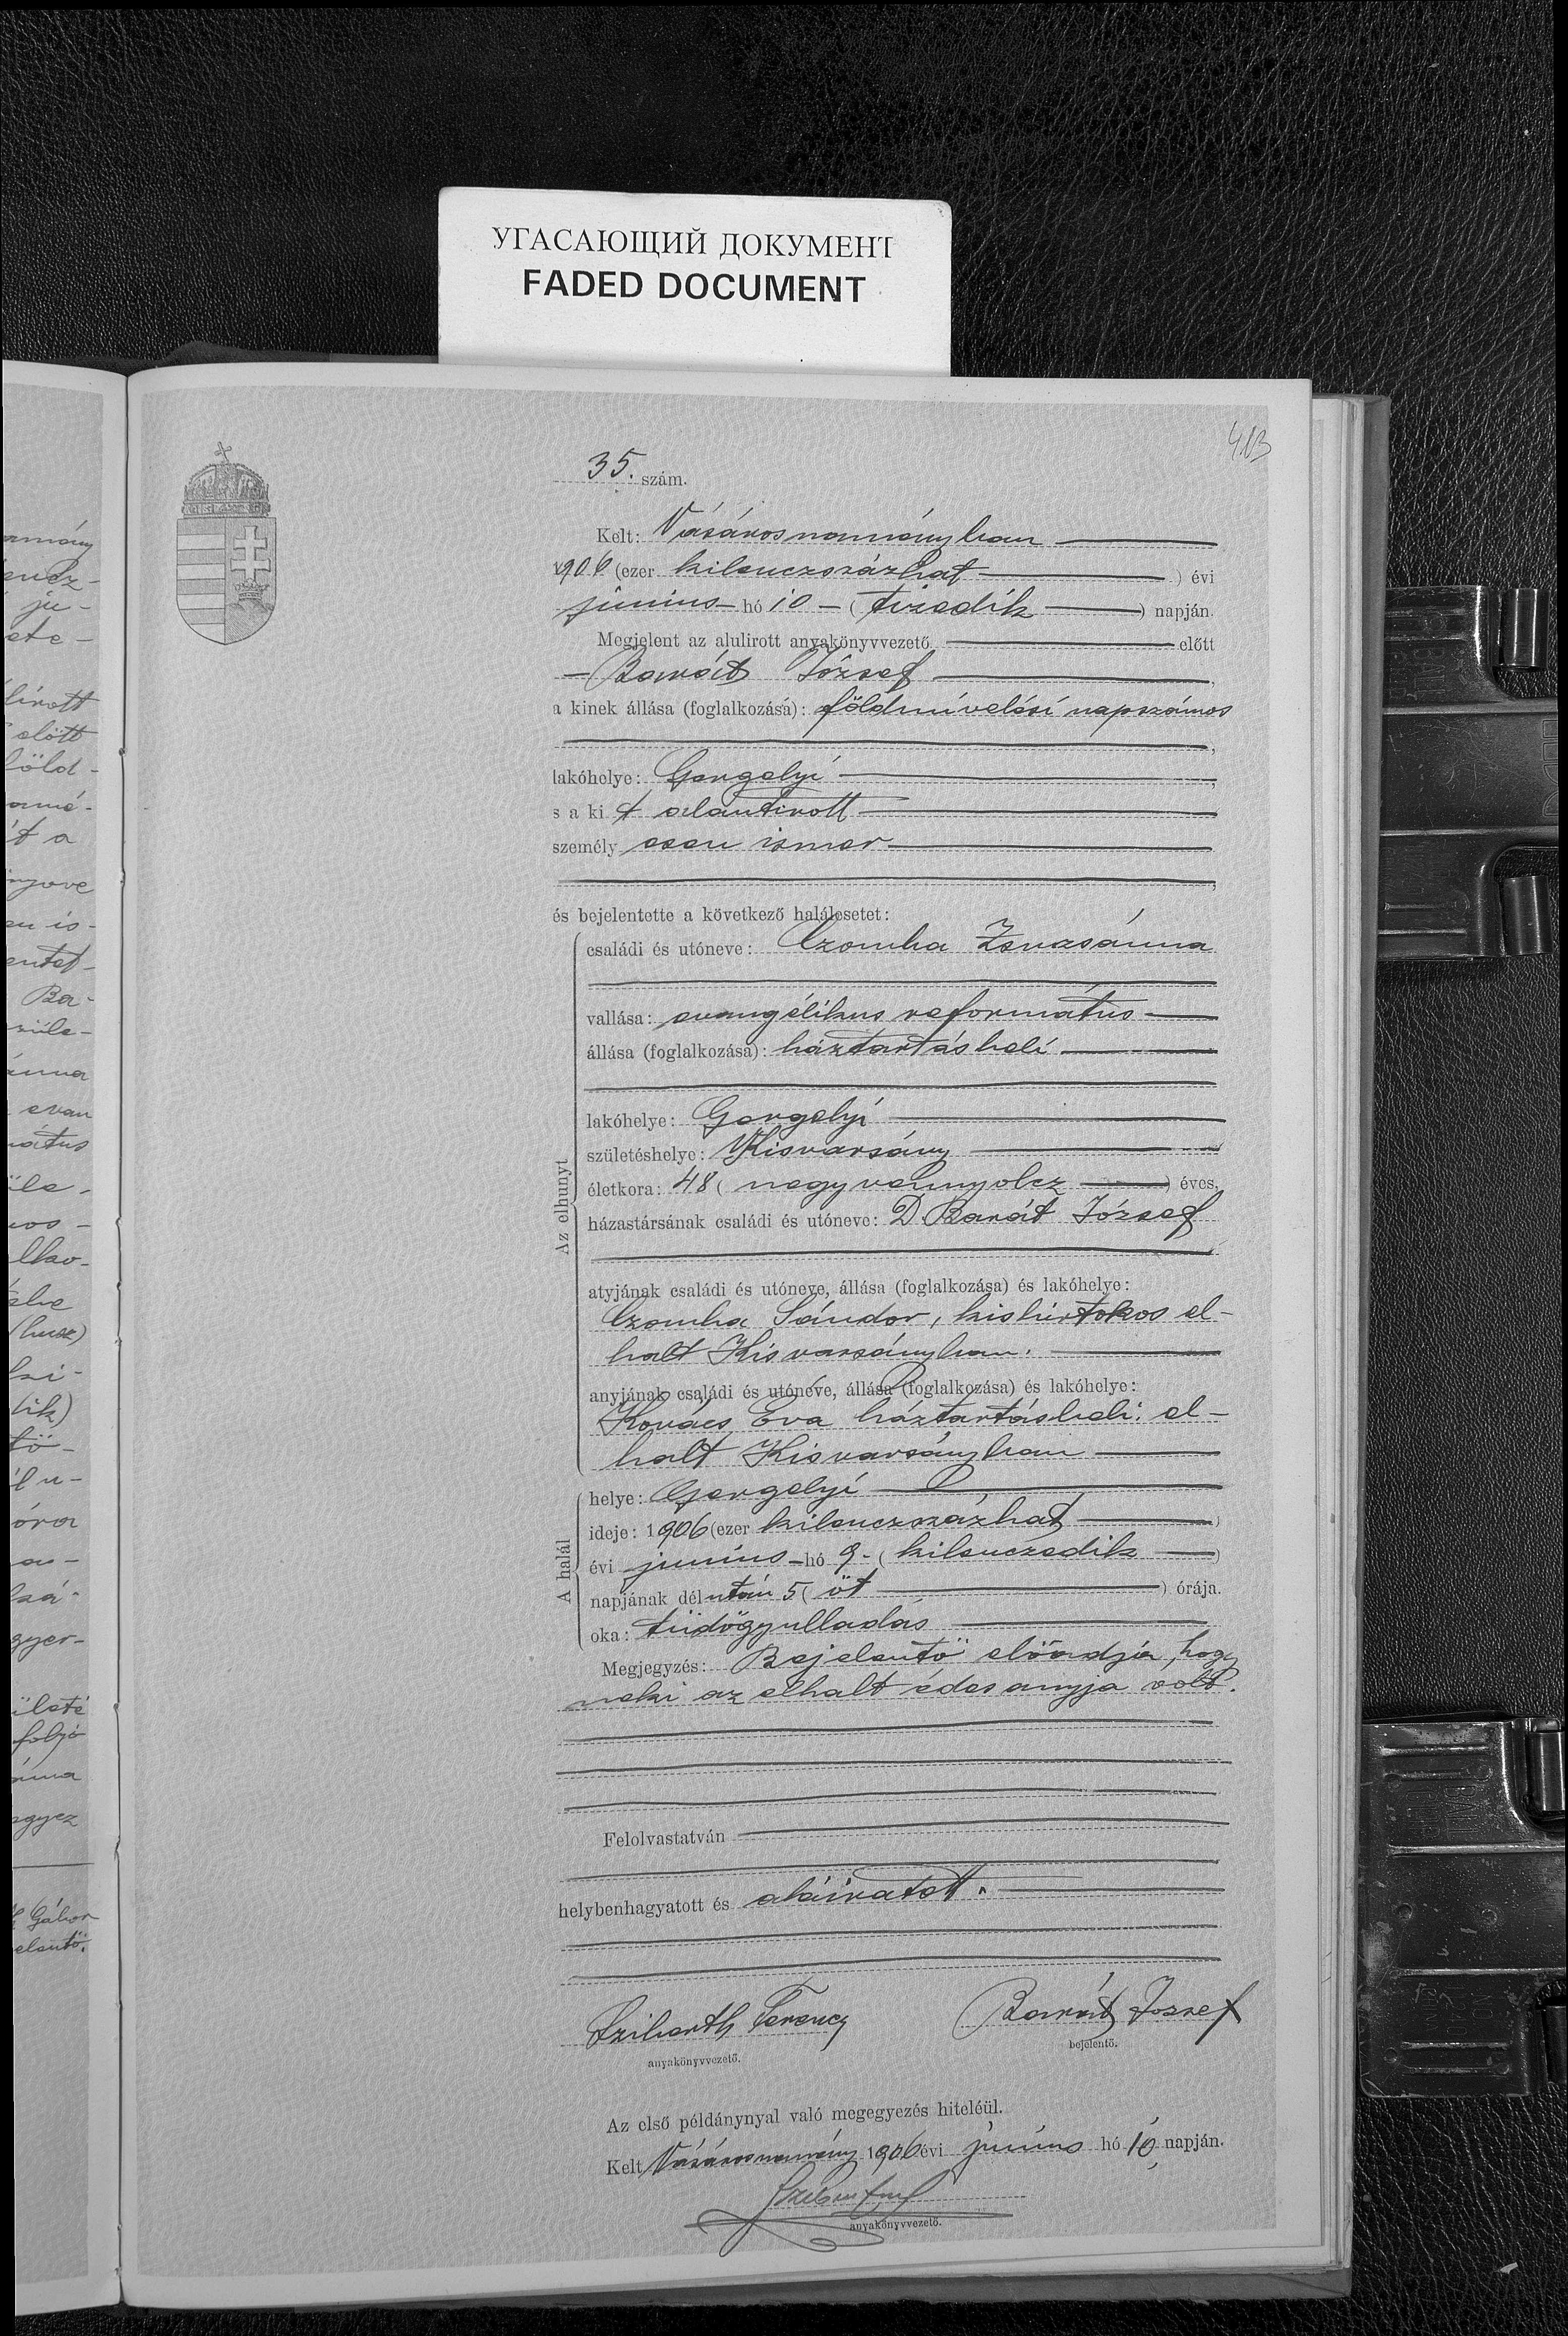 УГАСАЮЩИЙ ДОКУМЕНТ
FADED DOCUMENT
413
35. szám.
Kelt: Vásárosnaményban
1906 (ezer kilenczszázhat ) évi
junius hó 10 - ( tizedik ) napján.
Megjelent az alulirott anyakönyvvezető előtt
Barát József
a kinek állása (foglalkozása): földmívelési napszámos
lakóhelye: Gergelyi
s a kit alantirott
személyesen ismer
és bejelentette a következő halálesetet:
Az elhunyt
családi és utóneve: Czomba Zsuzsánna
vallása: evangélikus református
állása (foglalkozása): háztartásbeli
lakóhelye: Gergelyi
születéshelye: Kisvarsány
életkora: 48 ( negyvennyolcz ) éves,
házastársának családi és utóneve: D. Barát József
atyjának családi és utóneve, állása (foglalkozása) és lakóhelye:
Czomba Sándor, kisbirtokos el-
halt Kisvarsányban.
anyjának családi és utóneve, állása (foglalkozása) és lakóhelye:
Kovács Eva háztartásbeli, el-
halt Kisvarsányban
A halál
helye: Gergelyi
ideje: 1906 (ezer kilenczszázhat )
évi junius hó 9 - ( kilenczedik )
napjának délután 5 ( öt ) órája.
oka: tüdőgyulladás
Megjegyzés: Bejelentő előadja, hogy
neki az elhalt édes anyja volt.
Felolvastatván
helybenhagyatott és aláiratott.
Ferencz Barát József
anyakönyvvezető. bejelentő.
Az első példánynyal való megegyezés hiteléül.
Kelt Vásárosnamény 1906 évi június hó 10 napján.
anyakönyvvezető.